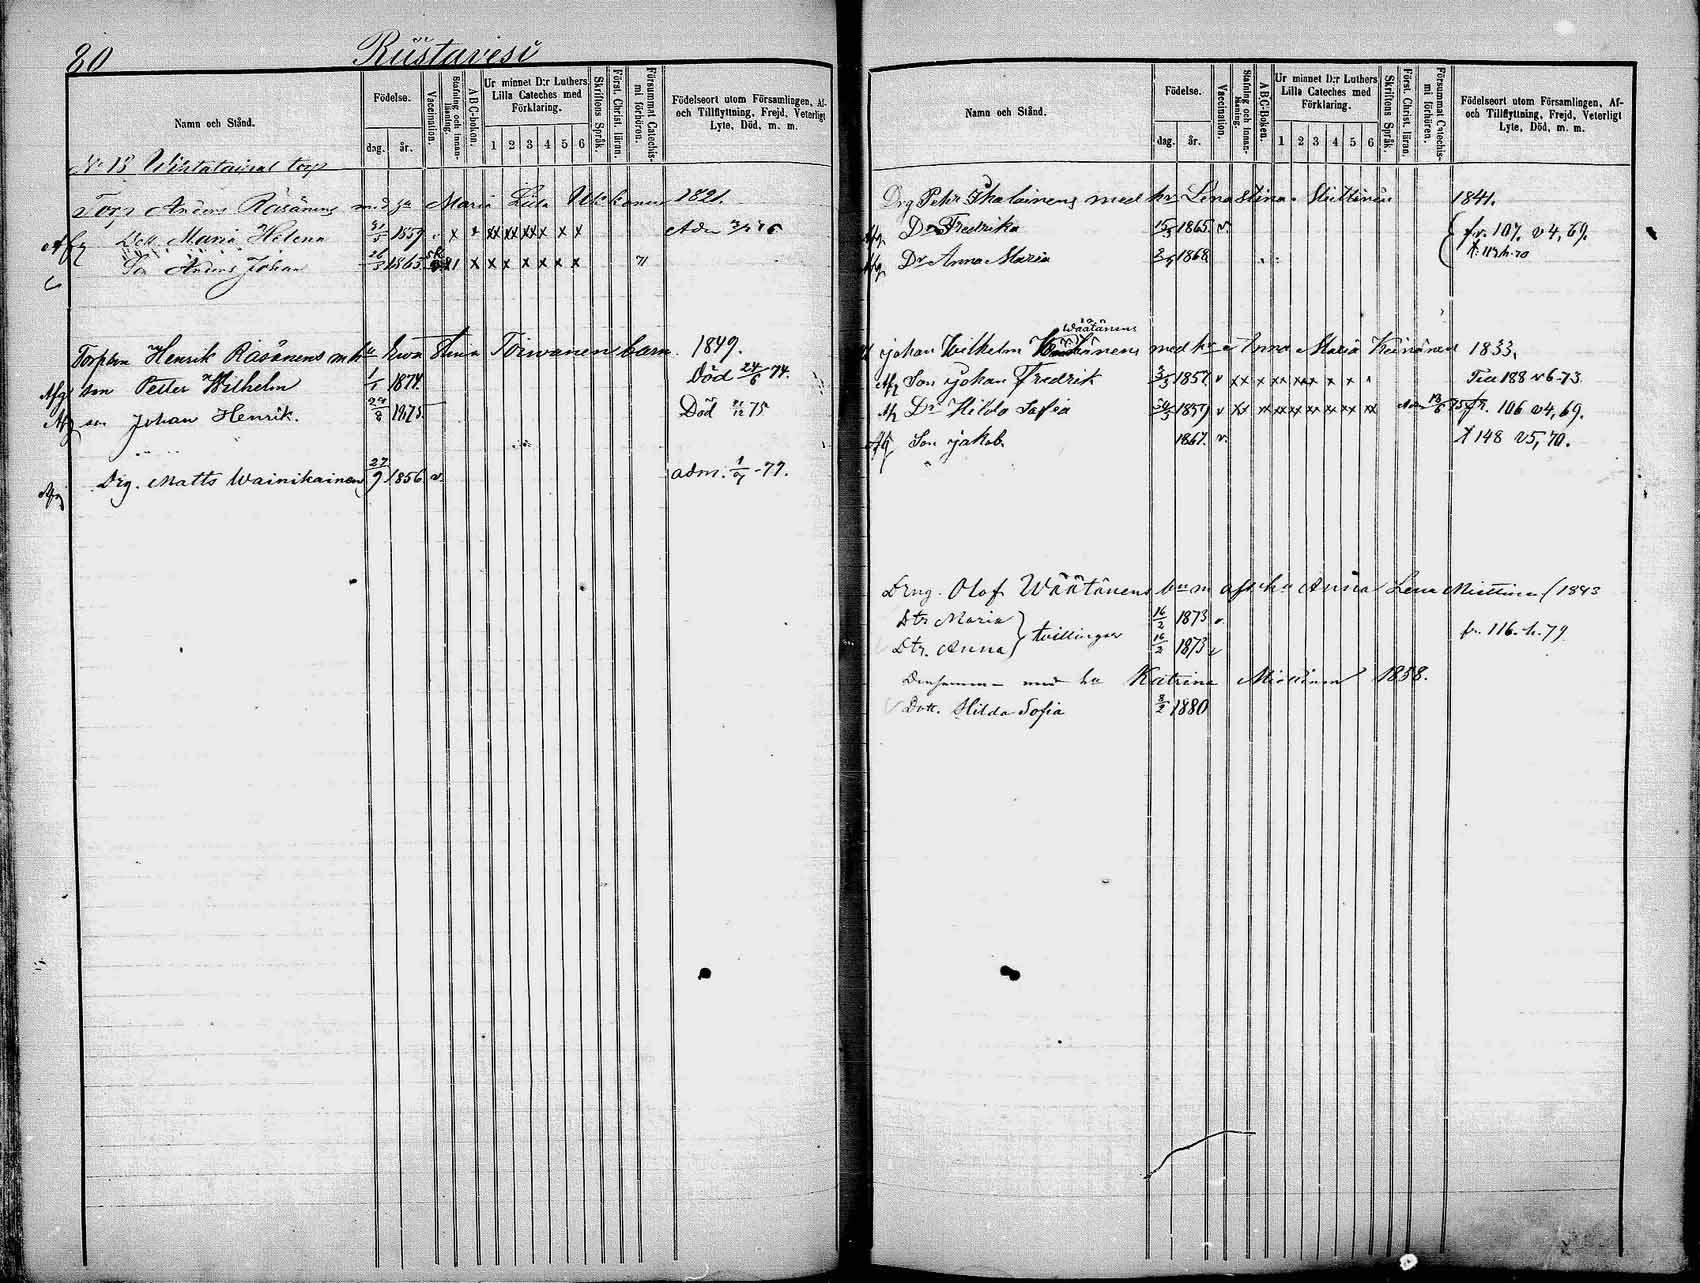 80 Riistavesi
Namn och Stånd.
Födelse.
dag. år.
Vaccination.
Stafning och Innanläsning.
ABC-boken.
Ur minnet D:r Luthers Lilla Cateches med Förklaring.
1 2 3 4 5 6
Skriftens Språk.
Först. Christ. läran.
Försummat Catechismi förhören.
Födelseort utom Församlingen, Af- och Tillflyttning, Frejd, Veterligt Lyte, Död, m. m.
No 13 torp
Torp Anders Räsänens Maria 1821.
Afg Dott. Maria Helena 31/5 1859 v x x xx xx xx x x x
So Anders Johan 26/3 1865 x x x x x x x x
Henrik Räsänens m hu Ewa Stina Toiwanen barn 1849.
Afg son Petter Wilhelm 1/1 1874. Död 24/6 74.
Af son Johan Henrik. 1875 Död 21/12 75
Afg Drg. Matts Wainikainen 27/9 1856 v. adm. 1/7 -77.
Namn och Stånd.
Födelse.
dag. år.
Vaccination.
Stafning och Innanläsning.
ABC-Boken.
Ur minnet D:r Luthers Lilla Cateches med Förklaring.
1 2 3 4 5 6
Skriftens Språk.
Först. Christ. läran.
Försummat Catechismi förhören.
Födelseort utom Församlingen, Af- och Tillflyttning, Frejd, Veterligt Lyte, Död, m. m.
Drg Pehr Ikalainens med hu Lena Stina 1841.
Afg. Dr Fredrika 15/3 1865 v fr. 107. v 4, 69.
Afg Dr Anna Maria 1868
Wäätänens
Johan Wilhelm med hu Anna Maria Keinänen 1833.
Afg Son Johan Fredrik 1857. v xx x x xx xx x x x Till 188 v 6-73.
Af Dr Hilda Sofia 1859 v xx xx xx xx xx xx xx fr. 106 v 4, 69.
Afg Son Jakob. 1867. v. t 148 v 5, 70.
Dreng. Olof Wäätänens barn Anna Lena Miettinen 1843
Dtr Maria 16/2 1873 v
tvillingar fr. 116. h. 79
Dtr. Anna 16/2 1873 v
Densamma med hu Katrina Miettinen 1858.
Dott. Hilda Sofia 8/2 1880